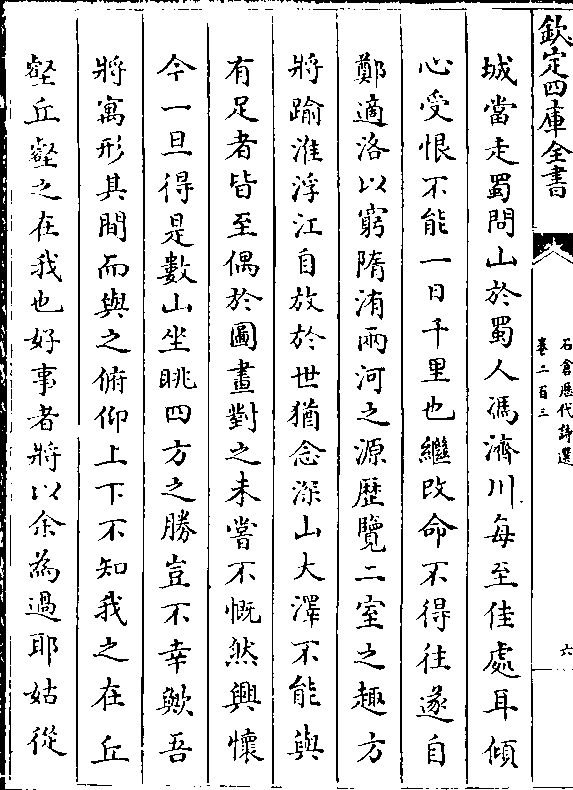 欽定四庫全書
石倉歷代詩選
卷二百三
六
城當走蜀問山於蜀人馮濟川每至佳處耳傾
心受恨不能一日千里也繼改命不得往遂自
鄭適洛以窮隋洧兩河之源歷覽二室之趣方
將踰淮浮江自放於世猶念深山大澤不能與
有足者皆至偶於圖畫對之未嘗不慨然興懷
今一旦得是數山坐眺四方之勝豈不幸歟吾
將寓形其間而與之俯仰上下不知我之在丘
壑丘壑之在我也好事者將以余為過耶姑從